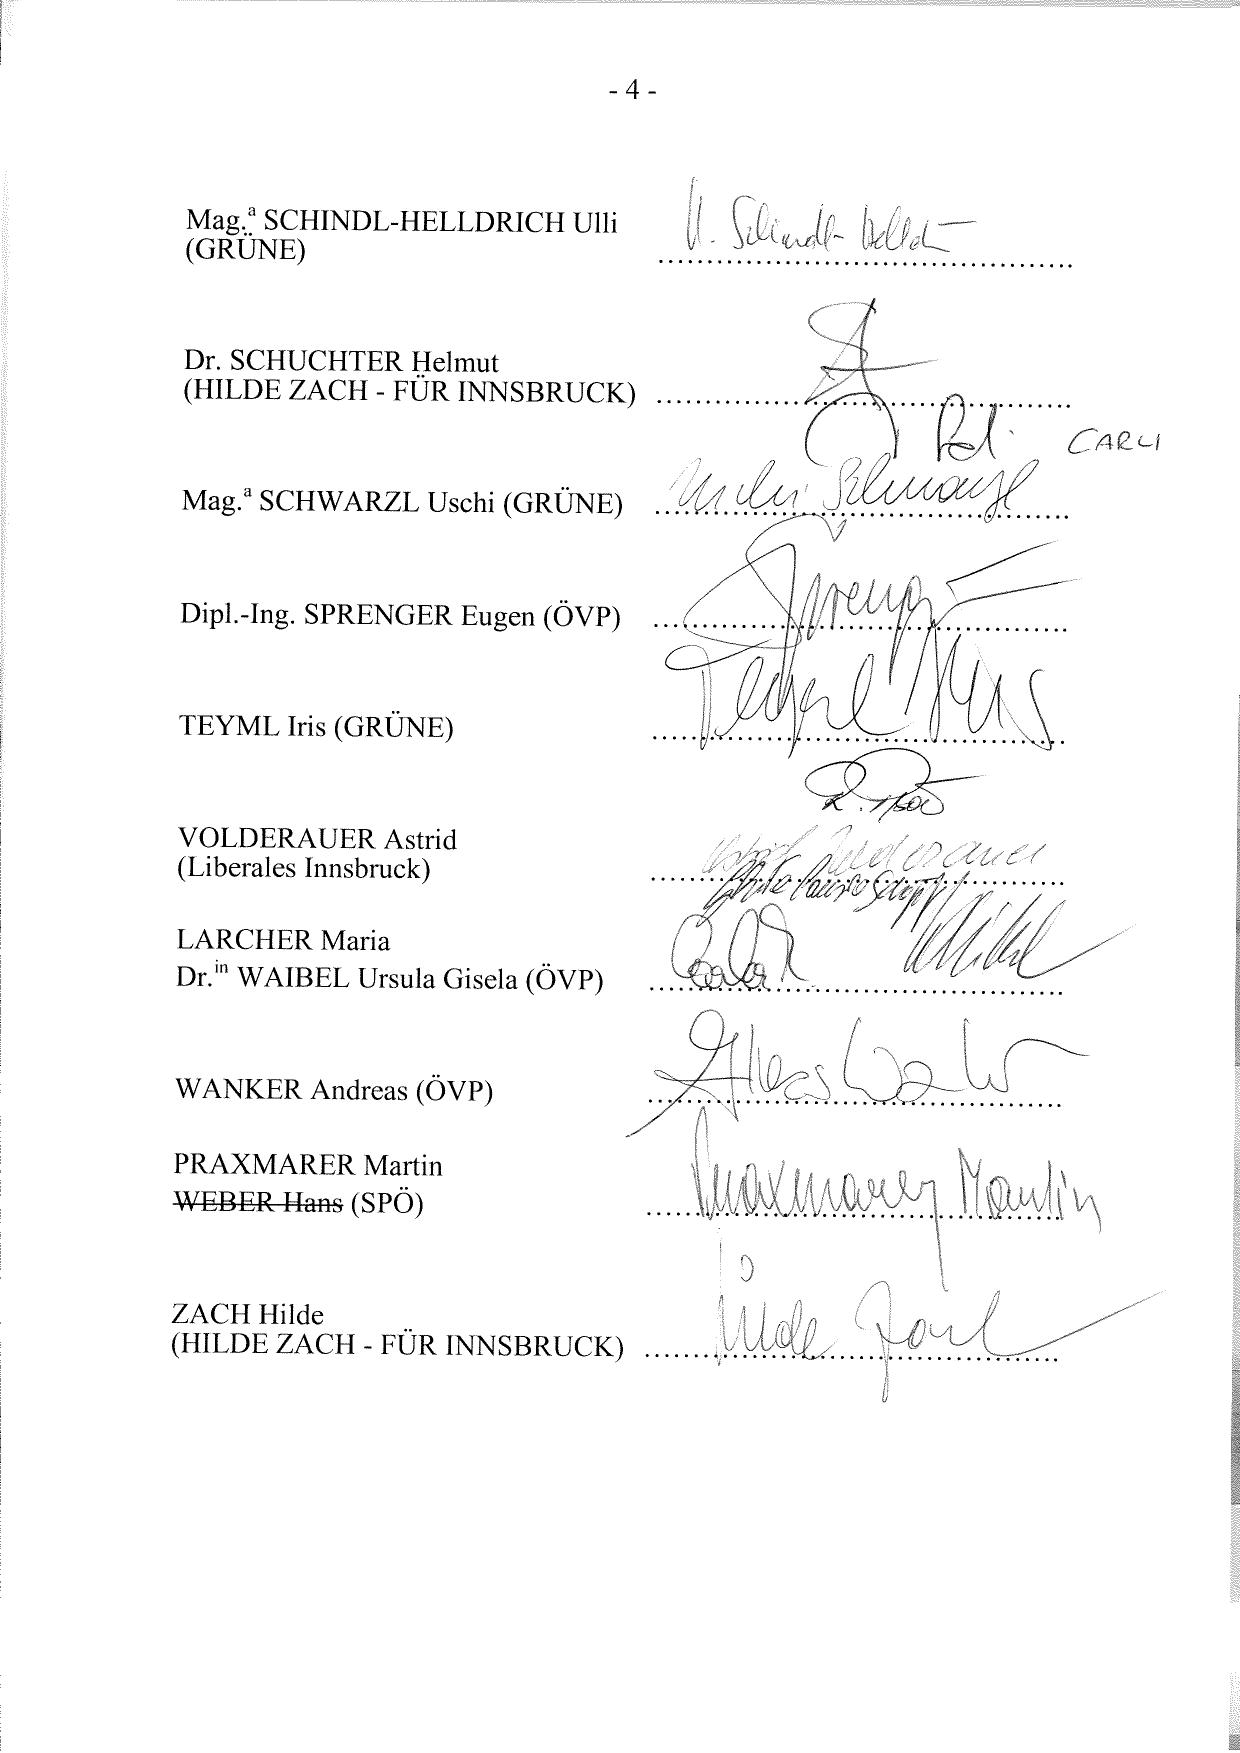 - 4 -
Mag.ª SCHINDL-HELLDRICH Ulli
(GRÜNE)
U. Schindl-Helld
Dr. SCHUCHTER Helmut
(HILDE ZACH - FÜR INNSBRUCK)
CARLI
Mag.ª SCHWARZL Uschi (GRÜNE)
Uschi Schwarzl
Dipl.-Ing. SPRENGER Eugen (ÖVP)
Sprenger
TEYML Iris (GRÜNE)
Teyml Iris
VOLDERAUER Astrid
(Liberales Innsbruck)
Astrid Volderauer
LARCHER Maria
Dr.ⁱⁿ WAIBEL Ursula Gisela (ÖVP)
WANKER Andreas (ÖVP)
PRAXMARER Martin
WEBER Hans (SPÖ)
Praxmarer Martin
ZACH Hilde
(HILDE ZACH - FÜR INNSBRUCK)
Hilde Zach